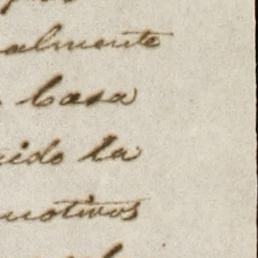 almente
Casa
ido la
motivos